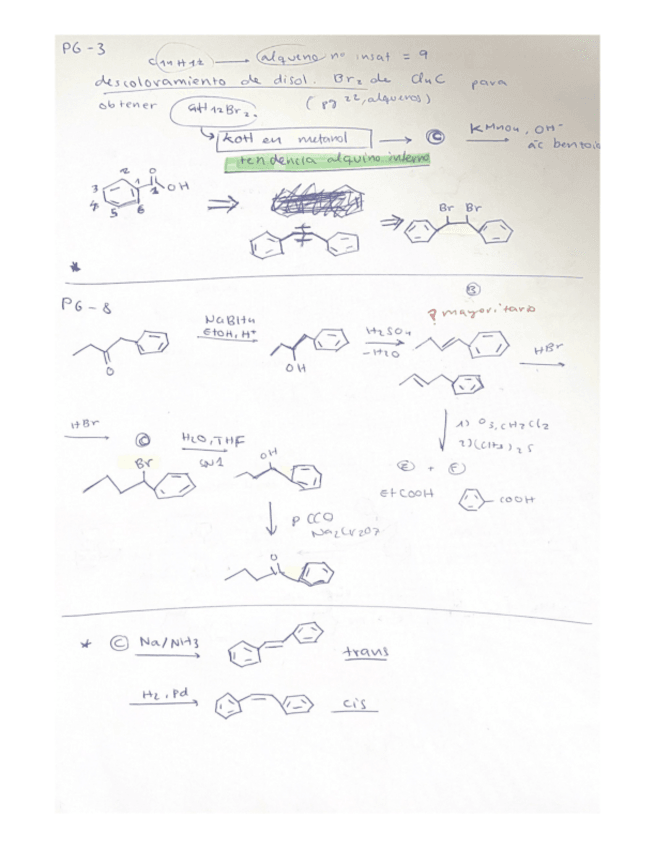 PG-3
C14H12 → alqueno nº insat = 9
descoloramiento de disol. Br2 de Cl4C para
obtener C14H12Br2. (pg 22, alquenos)
KOH en metanol → C KMnO4, OH-
ác benzoic
tendencia alquino interno
O
OH
1 2 3 4 5 6
⇒ ⇒
Br Br
*
PG-8
B
mayoritario
NaBH4
EtOH, H+
H2SO4
-H2O
HBr
O
OH
HBr
C
H2O, THF
SN1
1) O3, CH2Cl2
2) (CH3)2S
Br
OH
E + F
EtCOOH
COOH
PCCO
Na2Cr2O7
O
* C Na/NH3
trans
H2, Pd
cis